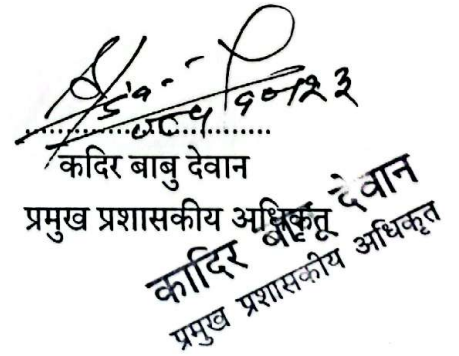 कदिर बाबु देवान
प्रमुख प्रशासकीय अधिकृत
कादिर बाबु देवान
प्रमुख प्रशासकीय अधिकृत